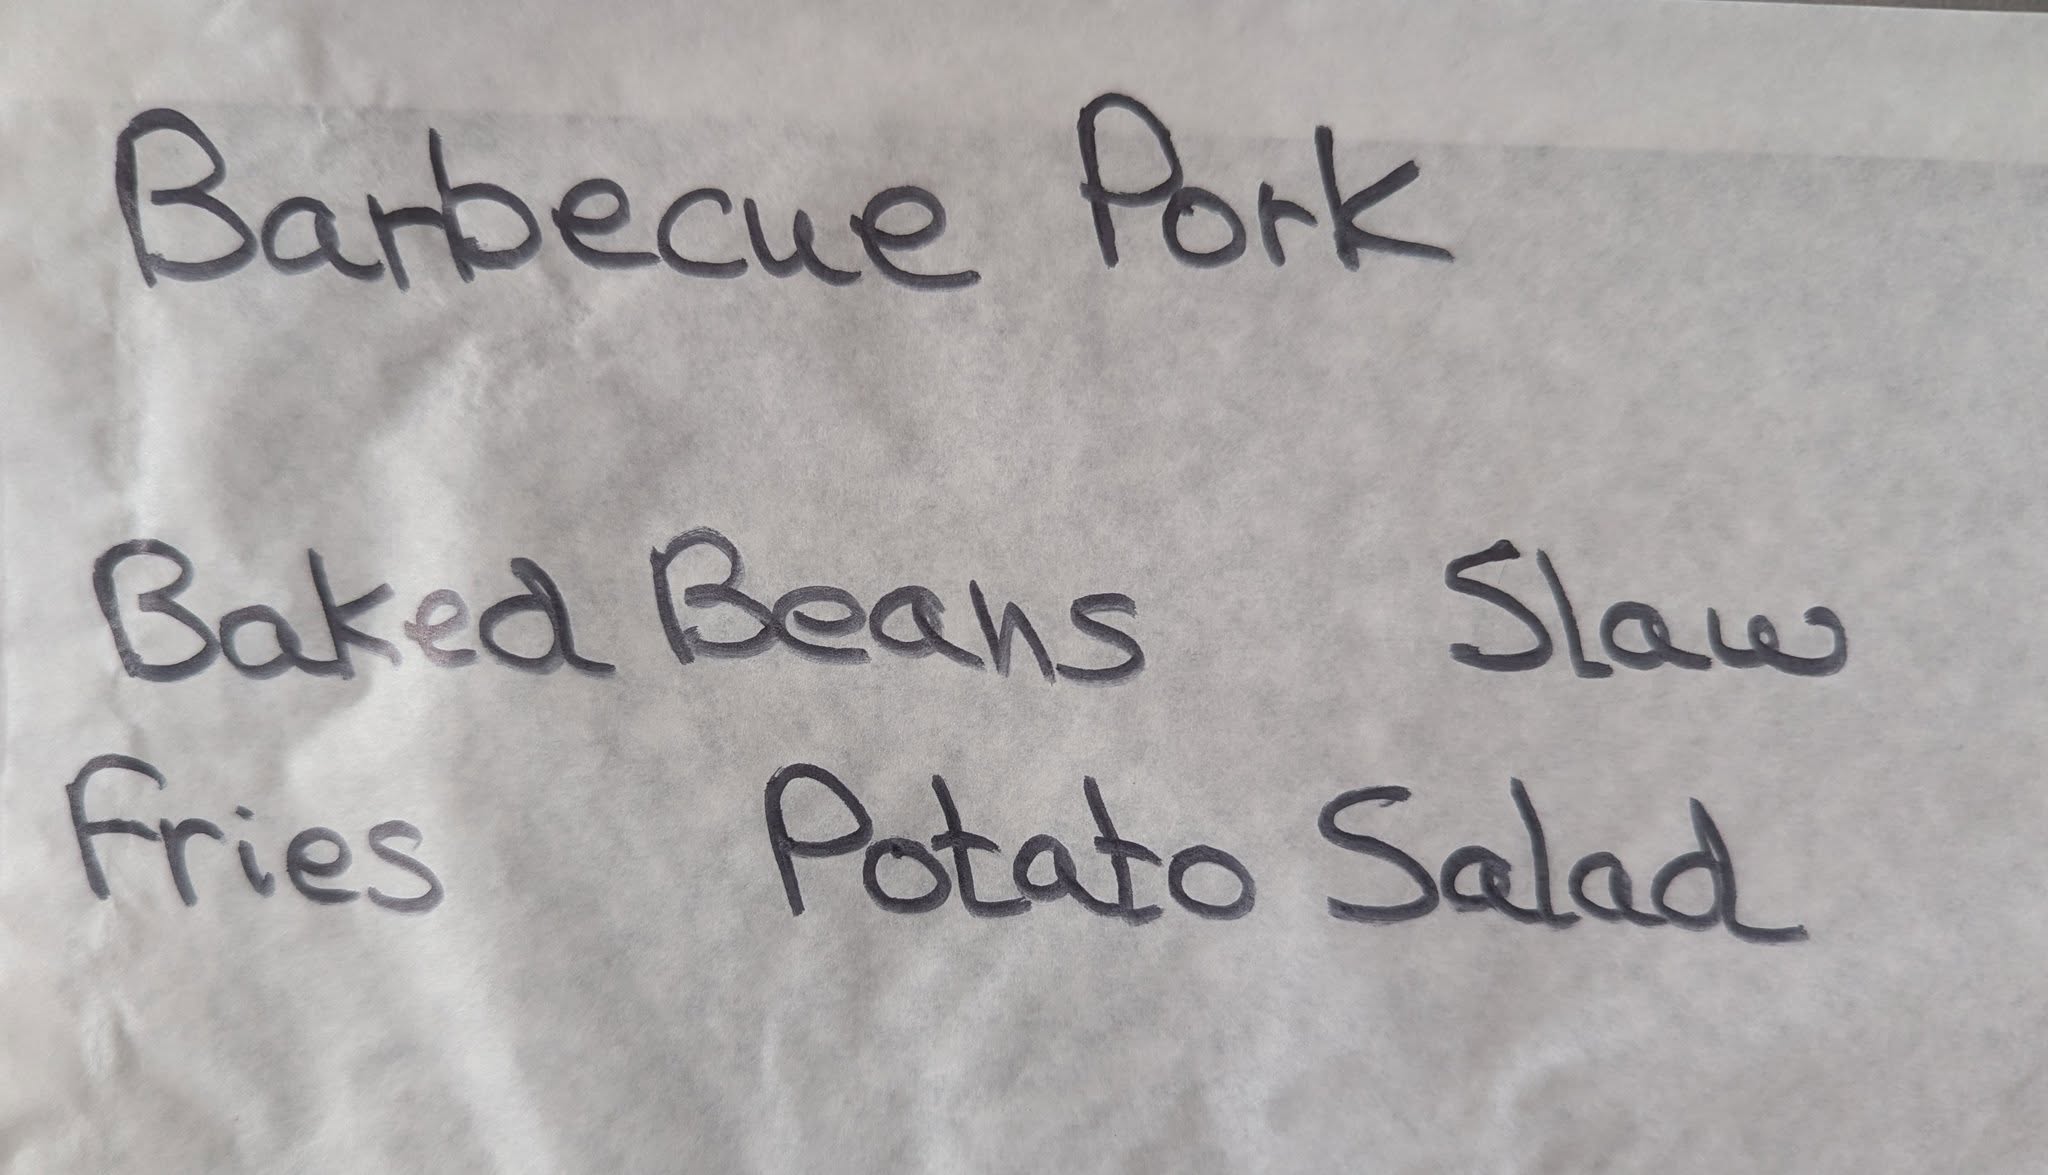 Barbecue Pork
Baked Beans Slaw
Fries Potato Salad